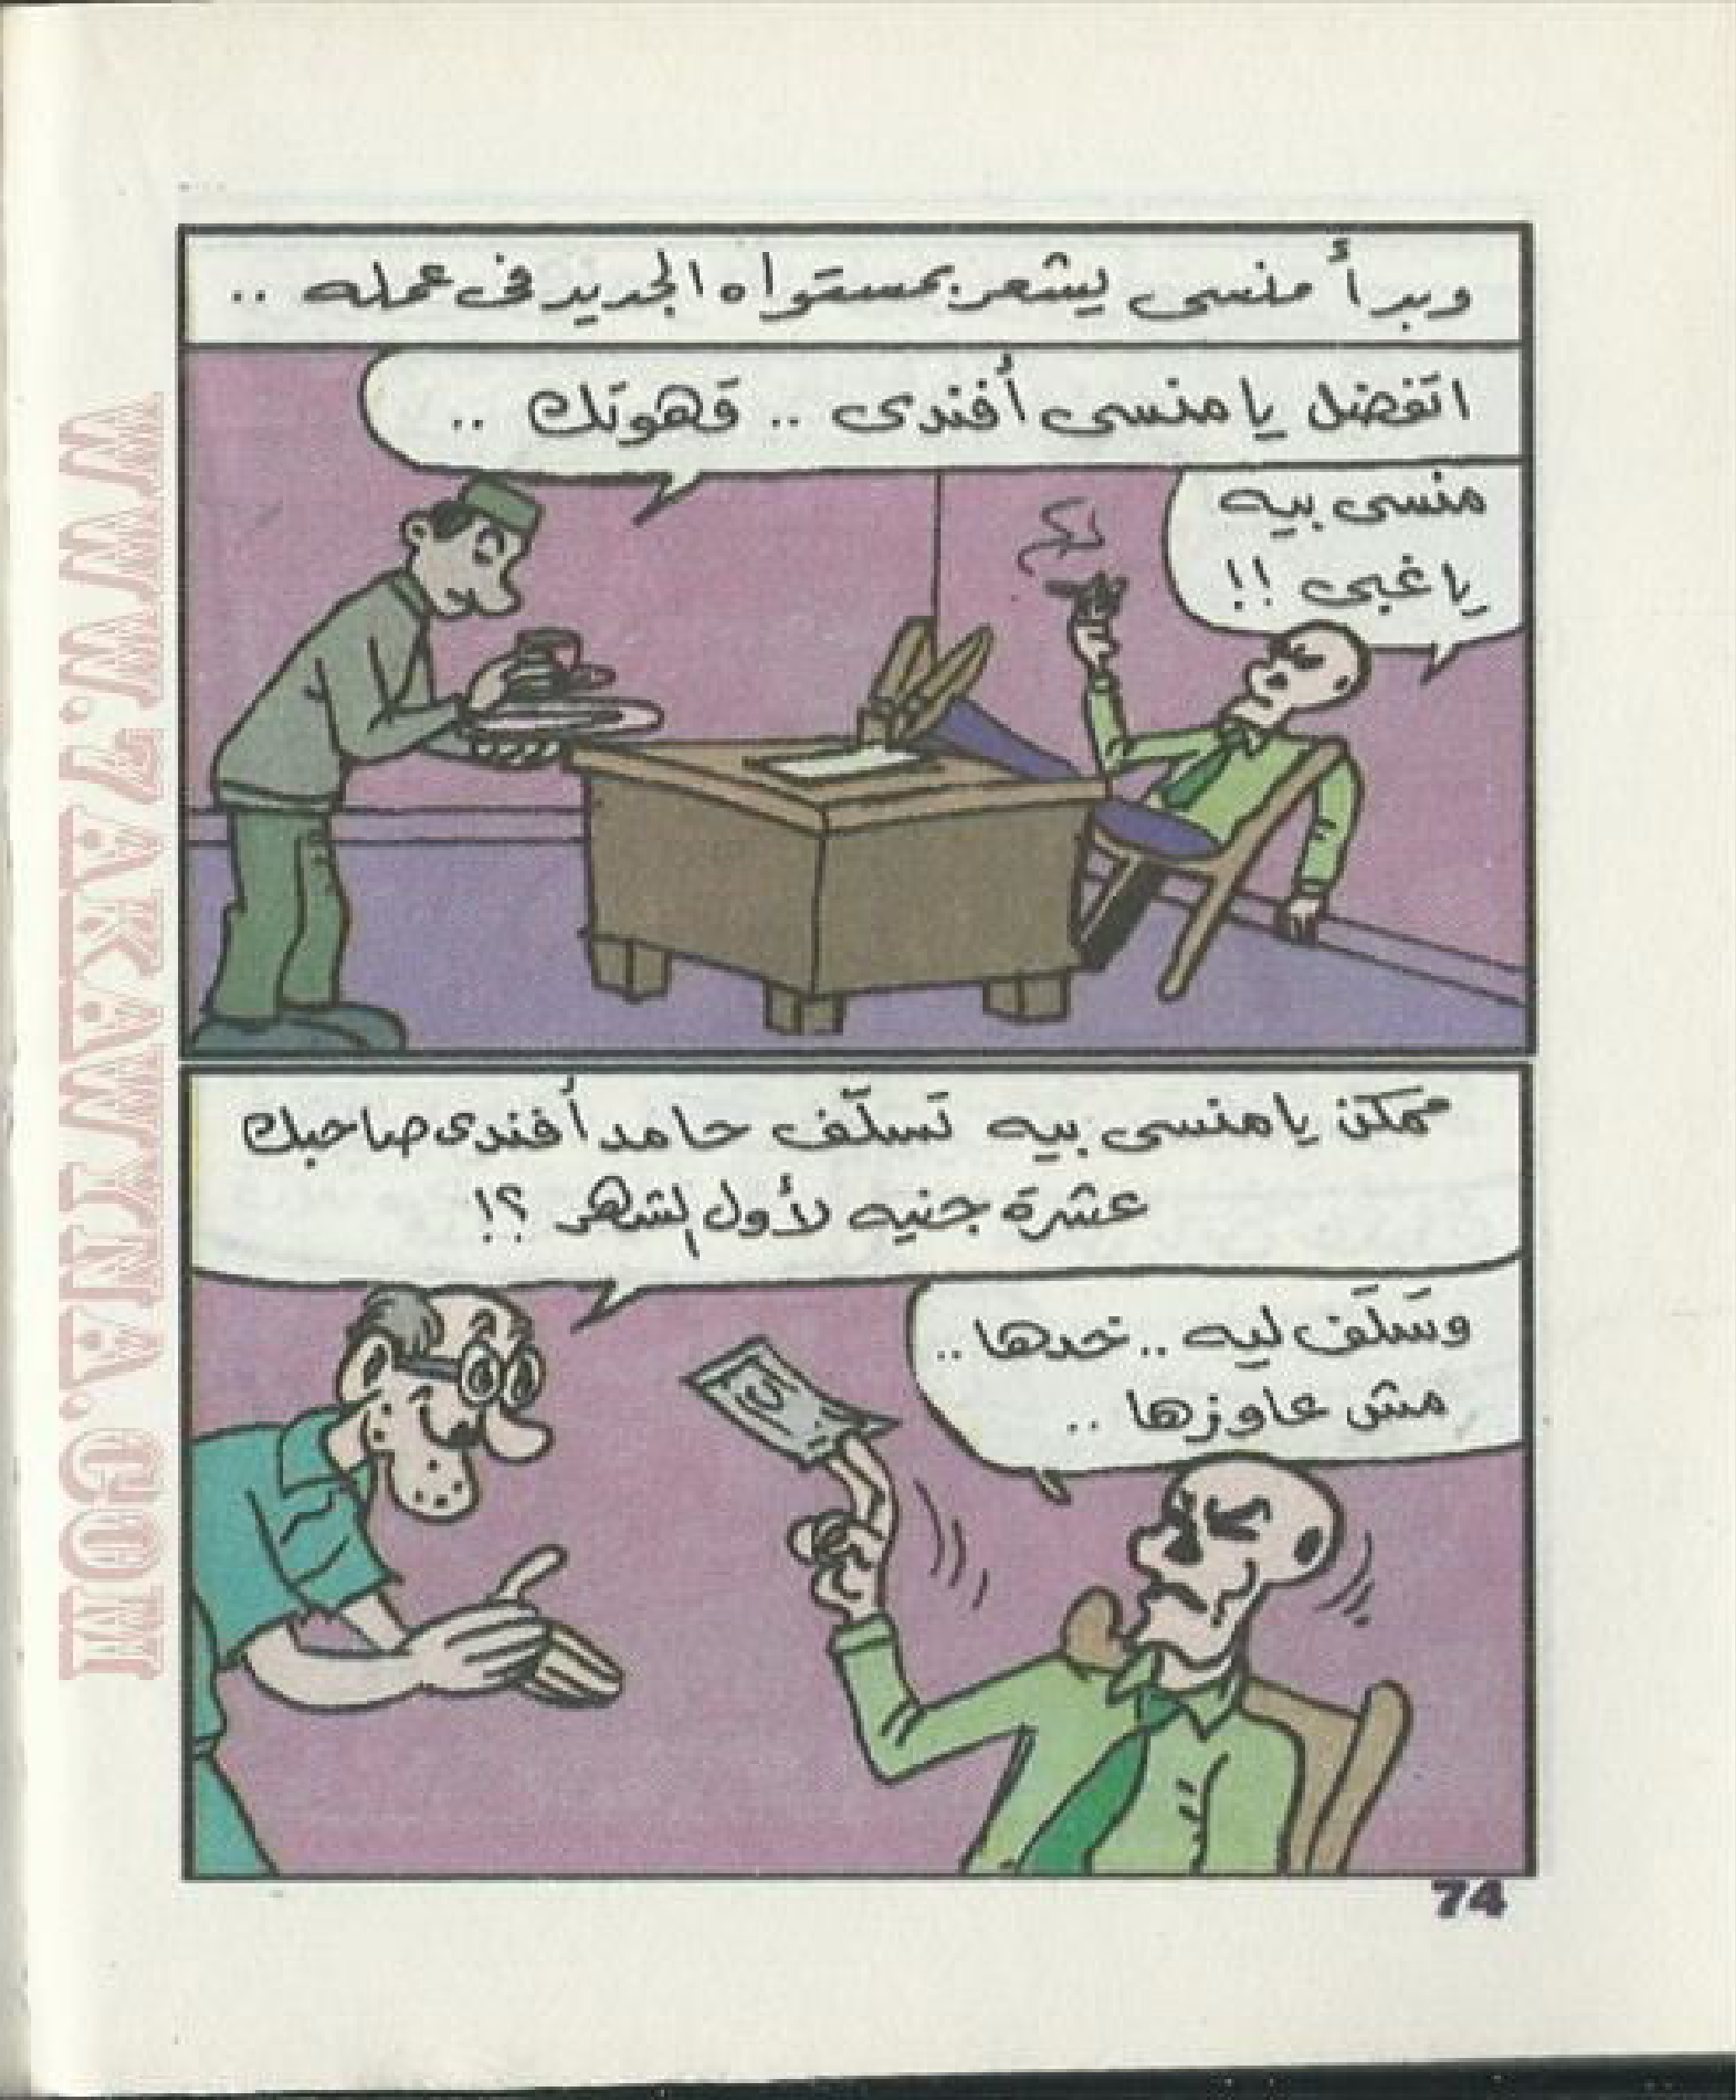 وبدأ منسى يشعر بمستواه الجديد فى عمله ..
اتفضل يا منسى أفندى .. قهوتك ..
منسى بيه
يا غبى !!
ممكن يا منسى بيه تسلّف حامد أفندى صاحبك
عشرة جنيه لأول الشهر ؟!
وسَلَف ليه .. خدها ..
مش عاوزها ..
74
WWW.7AKAWTNA.COM